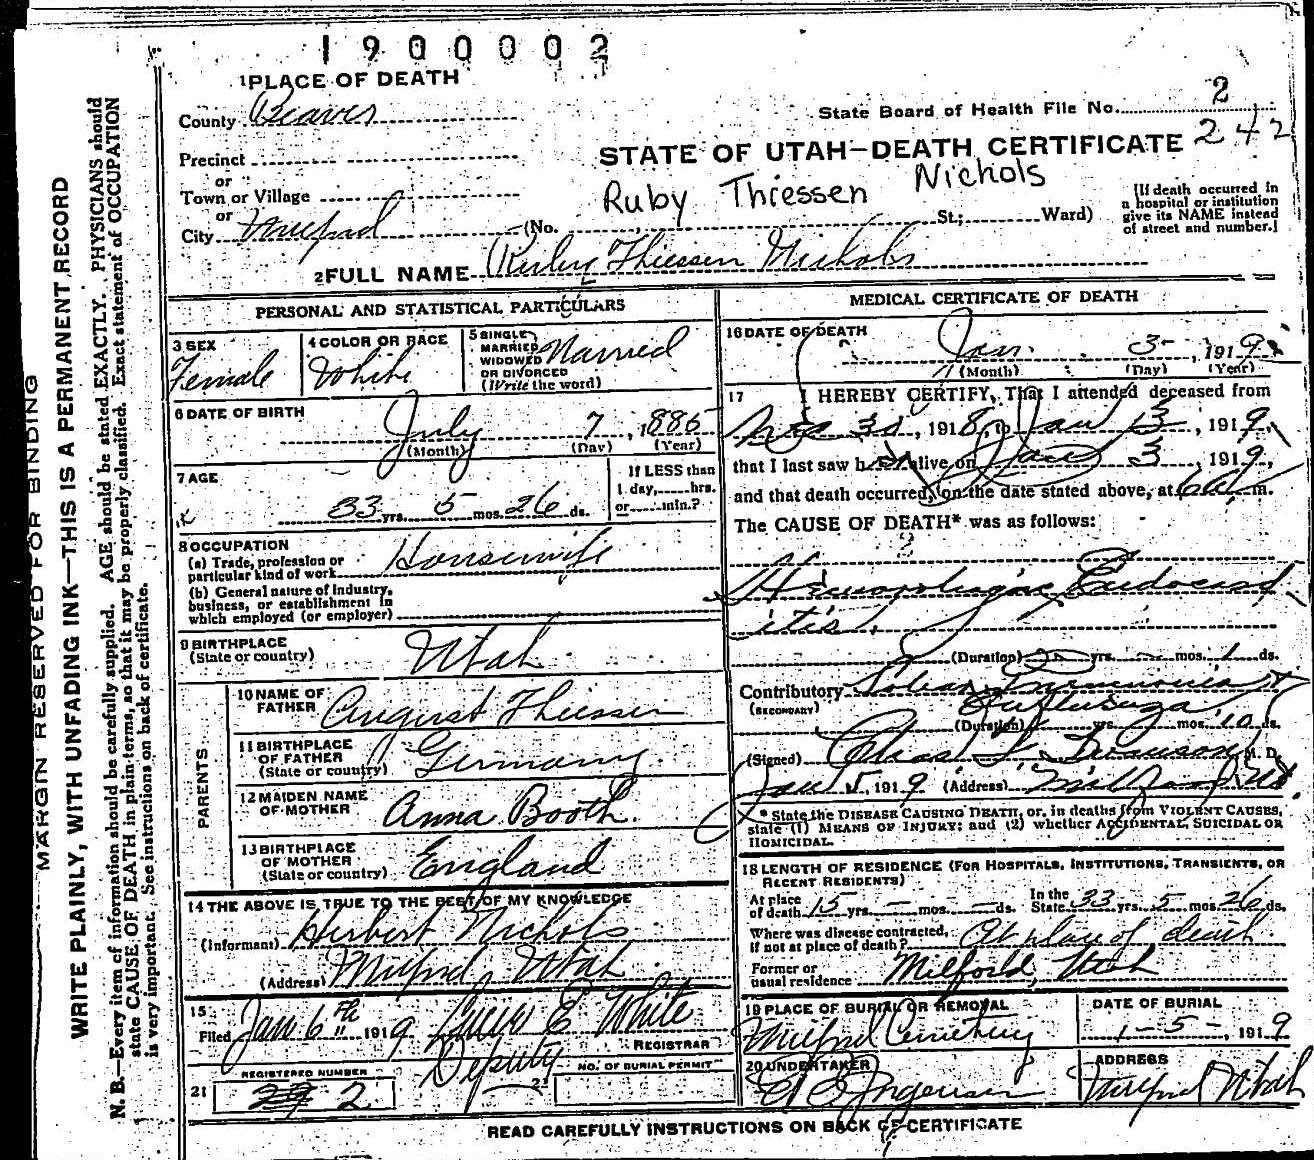 1900002
1 PLACE OF DEATH
County Beaver
State Board of Health File No. 2
242
Precinct
or
Town or Village
or
City Milford
STATE OF UTAH—DEATH CERTIFICATE
Ruby Thiessen Nichols
(No. St.; Ward)
[If death occurred in
a hospital or institution
give its NAME instead
of street and number.]
2 FULL NAME Ruby Thiessen Nichols
MARGIN RESERVED FOR BINDING
WRITE PLAINLY, WITH UNFADING INK—THIS IS A PERMANENT RECORD
N. B.—Every item of information should be carefully supplied. AGE should be stated EXACTLY. PHYSICIANS should
state CAUSE OF DEATH in plain terms, so that it may be properly classified. Exact statement of OCCUPATION
is very important. See instructions on back of certificate.
PERSONAL AND STATISTICAL PARTICULARS
3 SEX
Female
4 COLOR OR RACE
White
5 SINGLE
MARRIED
WIDOWED
OR DIVORCED
(Write the word)
Married
6 DATE OF BIRTH
July 7, 1885
(Month) (Day) (Year)
7 AGE
33 yrs. 5 mos. 26 ds.
If LESS than
1 day, hrs.
or min.?
8 OCCUPATION
(a) Trade, profession or
particular kind of work Housewife
(b) General nature of industry,
business, or establishment in
which employed (or employer)
9 BIRTHPLACE
(State or country) Utah
PARENTS
10 NAME OF
FATHER August Thiessen
11 BIRTHPLACE
OF FATHER
(State or country) Germany
12 MAIDEN NAME
OF MOTHER Anna Booth.
13 BIRTHPLACE
OF MOTHER
(State or country) England
14 THE ABOVE IS TRUE TO THE BEST OF MY KNOWLEDGE
(Informant) Herbert Nichols
(Address) Milford, Utah
15
Filed Jan 6th 1919 E White
REGISTRAR
Deputy
21 REGISTERED NUMBER
2
NO. OF BURIAL PERMIT
MEDICAL CERTIFICATE OF DEATH
16 DATE OF DEATH
Jan. 3, 1919
(Month) (Day) (Year)
17 I HEREBY CERTIFY, That I attended deceased from
30, 1918, to Jan 3, 1919,
that I last saw her alive on Jan 3 1919,
and that death occurred, on the date stated above, at 6 a m.
The CAUSE OF DEATH* was as follows:
Hemorrhagic Endocard
itis.
(Duration) yrs. mos. 1 ds.
Contributory Lobar Pneumonia &
(SECONDARY) Influenza
(Duration) yrs. mos. 10 ds.
(Signed) Chas M. D.
Jan 5, 1919 (Address) Milford Ut.
* State the DISEASE CAUSING DEATH, or, in deaths from VIOLENT CAUSES,
state (1) MEANS OF INJURY; and (2) whether ACCIDENTAL, SUICIDAL OR
HOMICIDAL.
18 LENGTH OF RESIDENCE (FOR HOSPITALS, INSTITUTIONS, TRANSIENTS, OR
RECENT RESIDENTS)
At place
of death 15 yrs. — mos. — ds.
In the
State 33 yrs. 5 mos. 26 ds.
Where was disease contracted,
if not at place of death? At place of death
Former or
usual residence Milford, Utah
19 PLACE OF BURIAL OR REMOVAL
Milford Cemetery
DATE OF BURIAL
1-5-, 1919
20 UNDERTAKER
Jorgensen
ADDRESS
Milford Utah
READ CAREFULLY INSTRUCTIONS ON BACK OF CERTIFICATE